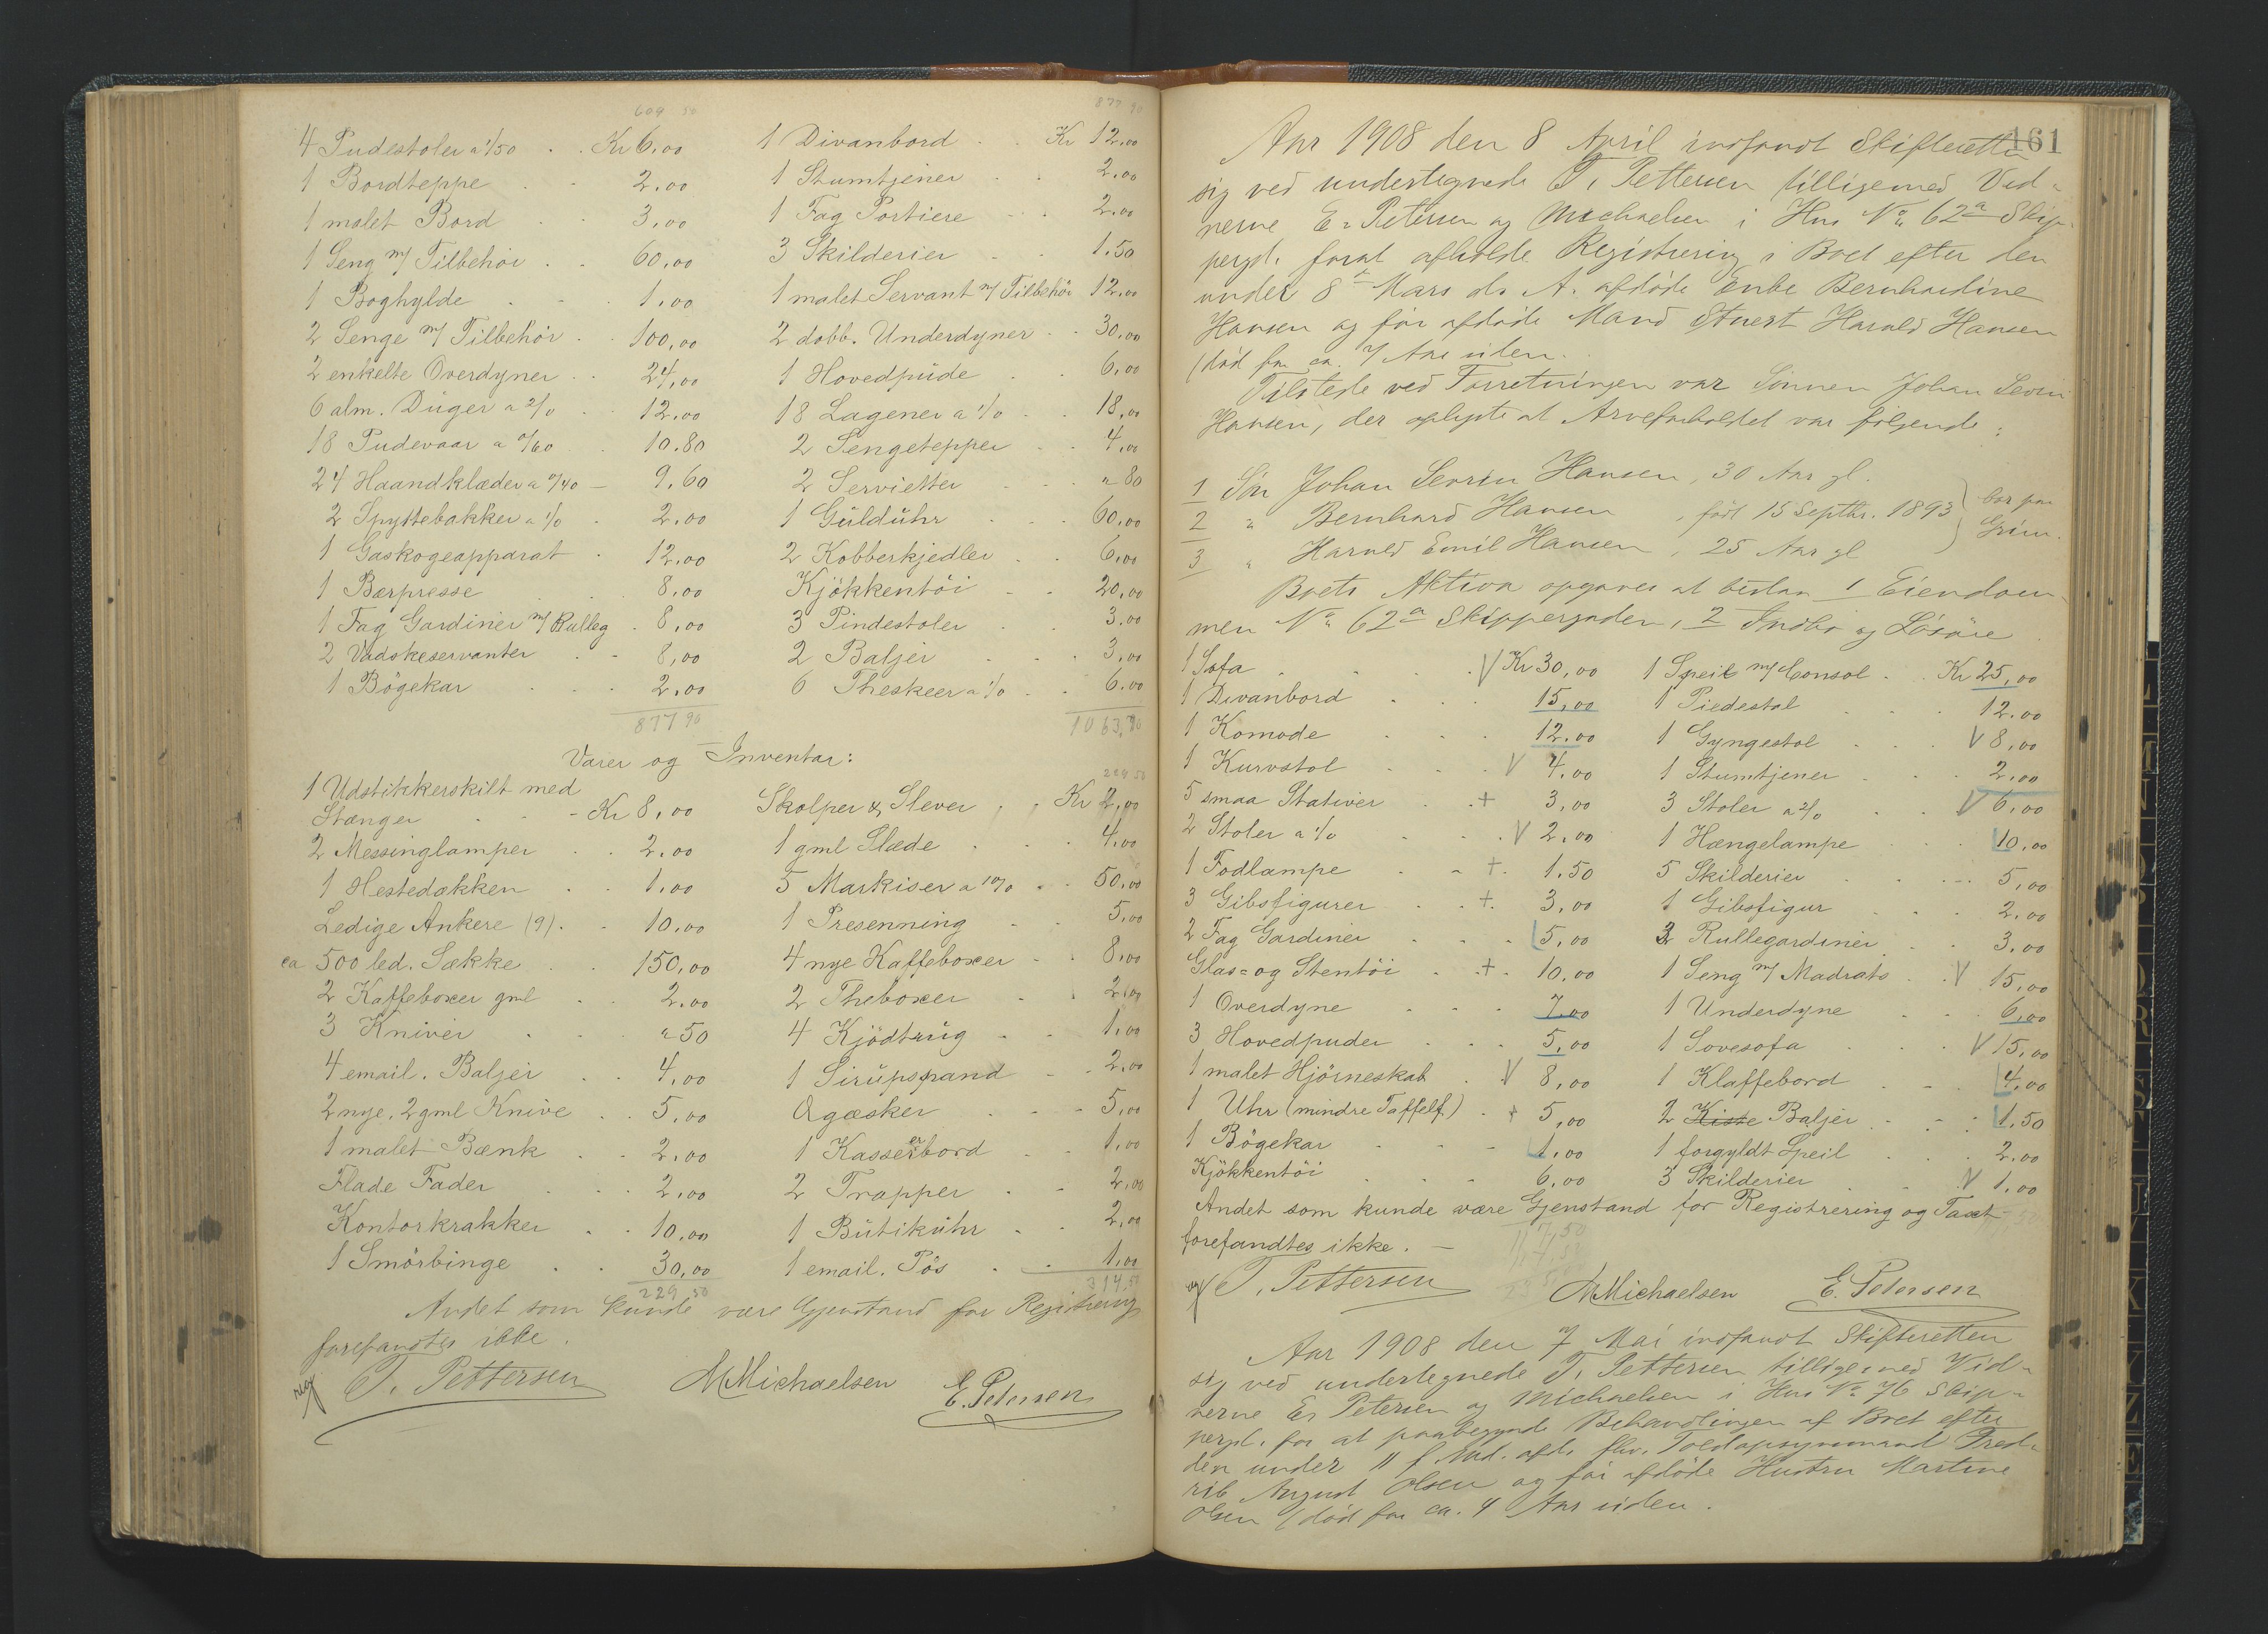 609 50
4 Pudestoler a 1/50 . . Kr 6,00
1 Bordteppe . . 2,00
1 malet Bord . . 3,00
1 Seng m/ Tilbehör . . 60,00
1 Boghylde . . 1,00
2 Senge m/ Tilbehör . . 100,00
2 enkelte Overdyner . . 24,00
6 alm. Duger a 2/0 . . 12,00
18 Pudevaar a 0/60 . 10.80
24 Haandklæder a 0/40 – 9,60
2 Spyttebakker a 1/0 . 2,00
1 Gaskogeapparat . 12,00
1 Bærpresse . . 8,00
1 Fag Gardiner m/ Rulleg . 8,00
2 Vadskeservanter . . 8,00
1 Bögekar . . . 2,00
877 90
877 90
1 Divanbord . . Kr 12,00
1 Stumtjener . . 2,00
1 Fag Portiere . . 2,00
3 Skilderier . . 1.50
1 malet Servant m/ Tilbehör 12,00
2 dobb. Underdyner . . 30,00
1 Hovedpude . . 6,00
18 Lagener a 1/0 . . 18,00
2 Sengetepper . . 4,00
2 Servietter . . . " 80
1 Guldühr . . . 60,00
2 Kobberkjedler . . 6,00
Kjökkentöi . . 20,00
3 Pindestoler . . 3,00
2 Baljer . . . 3,00
6 Theskeer a 1/0 . . 6,00
1063,70
Varer og Inventar:
1 Udstikkerskilt med
Stænger . . - Kr 8,00
2 Messinglamper . . 2,00
1 Hestedækken . . 1,00
Ledige Ankere (9) . . 10,00
ca 500 led. Sække . . 150,00
2 Kaffeboxer gml . . 2,00
3 Kniver . . . " 50
4 email. Baljer . . 4,00
2 nye, 2 gml Knive . . 5,00
1 malet Bænk . . 2,00
Flade Fader . . . 2,00
Kontorkrakker . . 10,00
1 Smörbinge . . 30,00
229 50
229 50
Skolper & Slever . . Kr 2,00
1 gml Slæde . . . 4,00
5 Markiser a 10/0 . . 50,00
1 Presenning . . 5,00
4 nye Kaffeboxer . . 8,00
2 Theboxer . . 2,00
4 Kjödtrug . . 1,00
1 Sirupspand . . 2,00
Qgæsker . . . 5,00
1 Kassererbord . . 1,00
2 Trapper . . 2,00
1 Butikuhr . . 2,00
1 email. Pös . . 1,00
314,50
Andet som kunde være Gjenstand for Registrering
forefandtes ikke.
T. Pettersen MMichaelsen E. Petersen
161
Aar 1908 den 8 April indfandt Skifteretten
sig ved undertegnede T. Pettersen tilligemed Vid-
nerne E. Petersen og Michaelsen i Hus No 62a Skip-
pergd. forat afholde Registrering i Boet efter den
under 8de Mars d. A. afdöde Enke Bernhardine
Hansen og för afdöde Mand Stuert Harald Hansen
/död for ca. 7 Aar siden.
Tilstede ved Forretningen var Sönnen Johan Severin
Hansen, der oplyste at Arveforholdet var fölgende:
1 Sön Johan Severin Hansen, 30 Aar gl.
2 " Bernhard Hansen, född 15 Septbr. 1893
3 " Harald Emil Hansen, 25 Aar gl
bor paa
Grim.
Boets Aktiva opgaves at bestaa 1 Eiendom-
men No 62a Skippergaden, 2 Indbo og Lösöre
1 Sofa . . . . V Kr 30,00
1 Divanbord . . . 15,00
1 Komode . . . 12.00
1 Kurvstol . . V 4,00
5 smaa Stativer . . + 3,00
2 Stoler a 1/0 . . V 2,00
1 Fodlampe . . + 1.50
3 Gibsfigurer . . + 3,00
2 Fag Gardiner . . 5,00
Glas- og Stentöi . . + 10,00
1 Overdyne . . . 7,00
3 Hovedpuder . . . 5,00
1 malet Hjörneskab . V 8,00
1 Uhr (mindre Taffelf.) . + 5,00
1 Bögekar . . . 1,00
Kjökkentöi . . . 6,00
1 Speil m/ Consol . . Kr 25,00
1 Piedestal . . . 12.00
1 Gyngestol . . . V 8,00
1 Stumtjener . . . 2,00
3 Stoler a 2/0 . . V 6,00
1 Hængelampe . . . 10,00
5 Skilderier . . . 5,00
1 Gibsfigur . . . 2,00
3 Rullegardiner . . 3,00
1 Seng m/ Madrats . . V 15,00
1 Underdyne . . . 6,00
1 Sovesofa . . . V 15,00
1 Klaffebord . . . 4,00
2 Kiste Baljer . . . 1,50
1 forgyldt Speil . . . 2,00
3 Skilderier . . V 1,00
Andet som kunde være Gjenstand for Registrering og Taxt
forefandtes ikke. –
T. Pettersen MMichaelsen E. Petersen
Aar 1908 den 7 Mai indfandt Skifteretten
sig ved undertegnede T. Pettersen tilligemed Vid-
nerne E. Petersen og Michaelsen i Hus No 76 Skip-
pergd. for at paabegynde Behandlingen af Boet efter
den under 11 f. Md. afd. fhv. Toldopsynsmand Fred-
rik August Olsen og för afdöde Hustru Martine
Olsen /död for ca. 4 Aar siden.